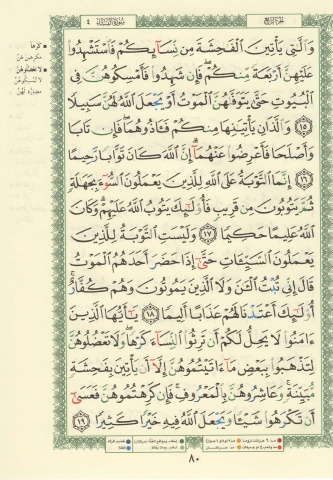 الجزء الرابع سورة النساء ٤
وَٱلَّٰتِي يَأۡتِينَ ٱلۡفَٰحِشَةَ مِن نِّسَآئِكُمۡ فَٱسۡتَشۡهِدُواْ
عَلَيۡهِنَّ أَرۡبَعَةٗ مِّنكُمۡۖ فَإِن شَهِدُواْ فَأَمۡسِكُوهُنَّ فِي
ٱلۡبُيُوتِ حَتَّىٰ يَتَوَفَّىٰهُنَّ ٱلۡمَوۡتُ أَوۡ يَجۡعَلَ ٱللَّهُ لَهُنَّ سَبِيلٗا
١٥ وَٱلَّذَانِ يَأۡتِيَٰنِهَا مِنكُمۡ فَـَٔاذُوهُمَاۖ فَإِن تَابَا
وَأَصۡلَحَا فَأَعۡرِضُواْ عَنۡهُمَآۗ إِنَّ ٱللَّهَ كَانَ تَوَّابٗا رَّحِيمًا
١٦ إِنَّمَا ٱلتَّوۡبَةُ عَلَى ٱللَّهِ لِلَّذِينَ يَعۡمَلُونَ ٱلسُّوٓءَ بِجَهَٰلَةٖ
ثُمَّ يَتُوبُونَ مِن قَرِيبٖ فَأُوْلَٰٓئِكَ يَتُوبُ ٱللَّهُ عَلَيۡهِمۡۗ وَكَانَ
ٱللَّهُ عَلِيمًا حَكِيمٗا ١٧ وَلَيۡسَتِ ٱلتَّوۡبَةُ لِلَّذِينَ
يَعۡمَلُونَ ٱلسَّيِّـَٔاتِ حَتَّىٰٓ إِذَا حَضَرَ أَحَدَهُمُ ٱلۡمَوۡتُ
قَالَ إِنِّي تُبۡتُ ٱلۡـَٰٔنَ وَلَا ٱلَّذِينَ يَمُوتُونَ وَهُمۡ كُفَّارٌۚ
أُوْلَٰٓئِكَ أَعۡتَدۡنَا لَهُمۡ عَذَابًا أَلِيمٗا ١٨ يَٰٓأَيُّهَا ٱلَّذِينَ
ءَامَنُواْ لَا يَحِلُّ لَكُمۡ أَن تَرِثُواْ ٱلنِّسَآءَ كَرۡهٗاۖ وَلَا تَعۡضُلُوهُنَّ
لِتَذۡهَبُواْ بِبَعۡضِ مَآ ءَاتَيۡتُمُوهُنَّ إِلَّآ أَن يَأۡتِينَ بِفَٰحِشَةٖ
مُّبَيِّنَةٖۚ وَعَاشِرُوهُنَّ بِٱلۡمَعۡرُوفِۚ فَإِن كَرِهۡتُمُوهُنَّ فَعَسَىٰٓ
أَن تَكۡرَهُواْ شَيۡـٔٗا وَيَجۡعَلَ ٱللَّهُ فِيهِ خَيۡرٗا كَثِيرٗا ١٩
كرها
مكرهين لهن
لا تعضلوهن
لا تمسكوهن
مضارة لهن
٨٠